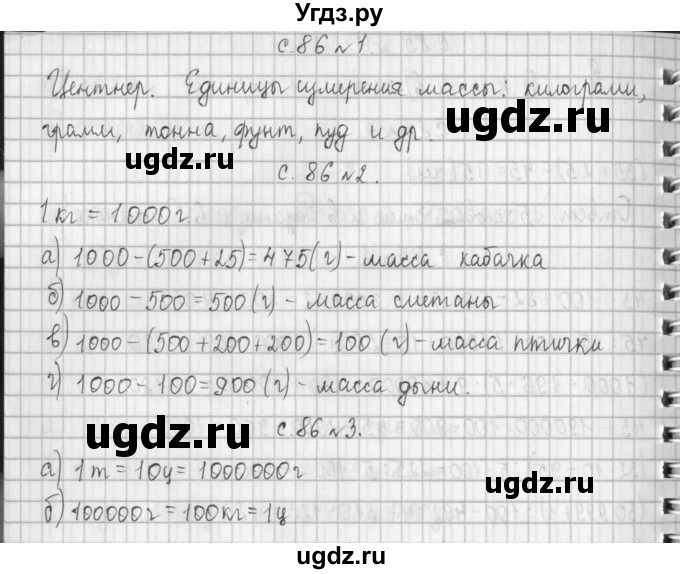 Угдз.ру
с. 86 №1
Центнер. Единицы измерения массы: килограмм,
грамм, тонна, фунт, пуд и др.
ugdz.ru ugdz.ru
с. 86 №2.
1 кг = 1000 г.
а) 1000-(500+25)=475(г)-масса кабачка
б) 1000-500=500(г)-масса сметаны
в) 1000-(500+200+200)=100(г)-масса птички
г) 1000-100=900(г)-масса дыни.
ugdz.ru
с. 86 №3.
а) 1т=10ц=1000000г
ugdz.ru
б) 100000г=100кг=1ц
ugdz.ru